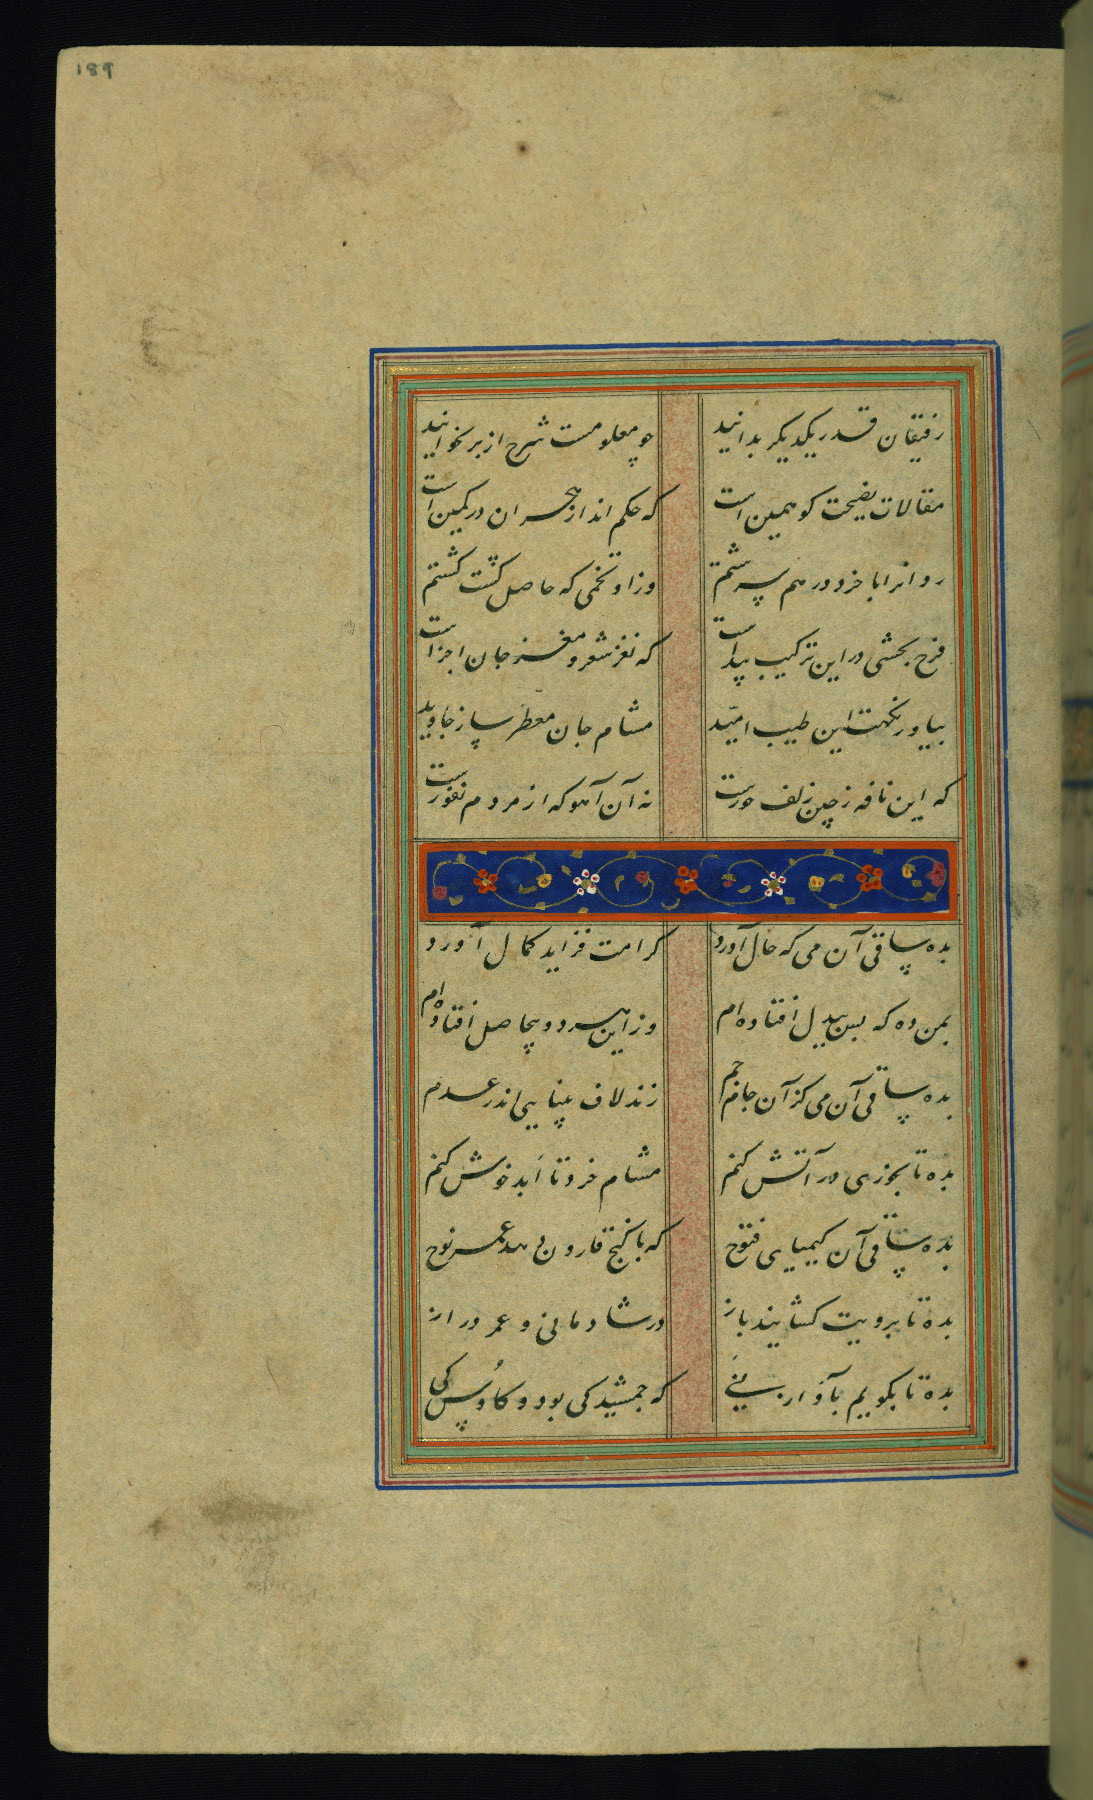 189
رفیقان قدر یکدیگر بدانید چو معلومست شرح از بر نخوانید
مقالات نصیحت کو همین است که حکم انداز هجران در کمین است
روانرا با خرد در هم سرشتم وز او تخمی که حاصل گشت کشتم
فرح بخشی در این ترکیب پیداست که نغز شعر و مغز جان اجزاست
بیا وز نکهت این طیب امید مشام جان معطر ساز جاوید
که این نافه ز چین زلف حورست نه آن آهو که از مردم نفورست
بده ساقی آن می که حال آورد کرامت فزاید کمال آورد
بمن ده که بس بیدل افتاده‌ام وز این هر دو بیحاصل افتاده‌ام
بده ساقی آن می کز آن جام جم زند لاف بینایی اندر عدم
بده تا بخوری در آتش کنم مشام خرد تا ابد خوش کنم
بده ساقی آن کیمیای فتوح که با گنج قارون دهد عمر نوح
بده تا برویت گشایند باز در شادمانی و عمر دراز
بده تا بگویم بآواز نی که جمشید کی بود و کاوس کی